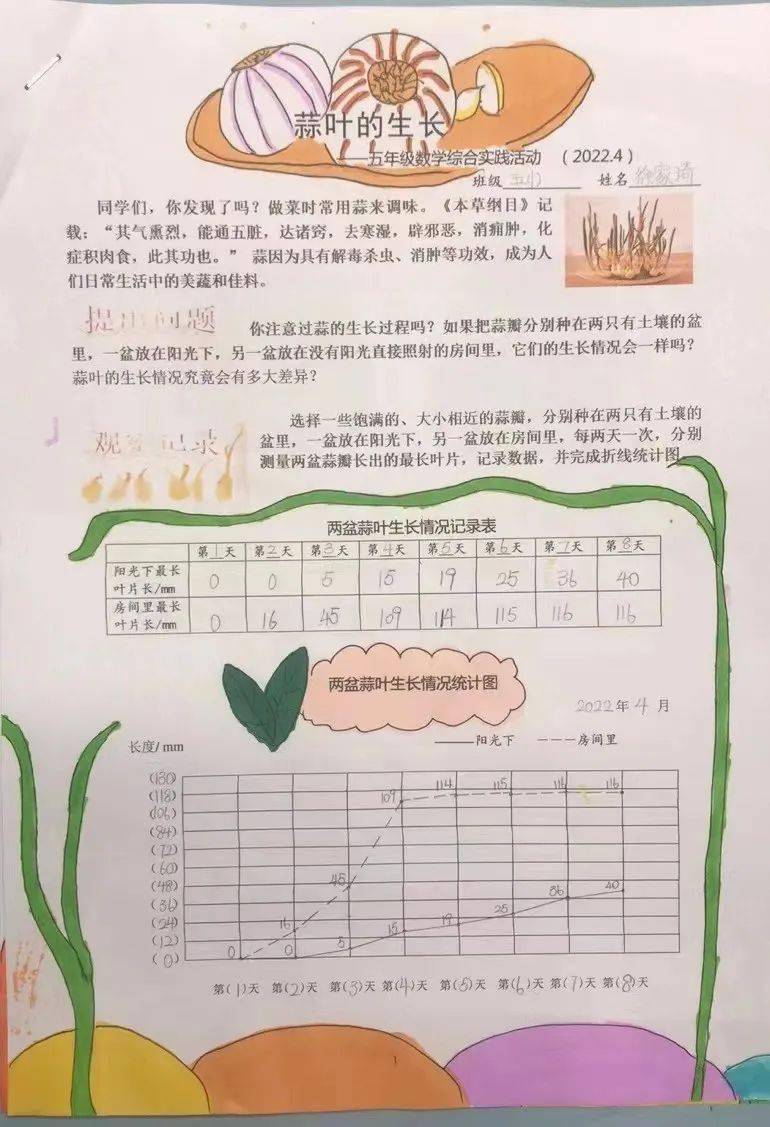 蒜叶的生长
——五年级数学综合实践活动 （2022.4）
班级 姓名
同学们，你发现了吗？做菜时常用蒜来调味。《本草纲目》记
载：“其气熏烈，能通五脏，达诸窍，去寒湿，辟邪恶，消痈肿，化
症积肉食，此其功也。” 蒜因为具有解毒杀虫、消肿等功效，成为人
们日常生活中的美蔬和佳料。
提出问题 你注意过蒜的生长过程吗？如果把蒜瓣分别种在两只有土壤的盆
里，一盆放在阳光下，另一盆放在没有阳光直接照射的房间里，它们的生长情况会一样吗？
蒜叶的生长情况究竟会有多大差异？
选择一些饱满的、大小相近的蒜瓣，分别种在两只有土壤的
观察记录 盆里，一盆放在阳光下，另一盆放在房间里，每两天一次，分别
测量两盆蒜瓣长出的最长叶片，记录数据，并完成折线统计图。
两盆蒜叶生长情况记录表
第1天 第2天 第3天 第4天 第5天 第6天 第7天 第8天
阳光下最长
叶片长/mm 0 0 5 15 19 25 36 40
房间里最长
叶片长/mm 0 16 45 109 114 115 116 116
两盆蒜叶生长情况统计图
2022年4月
长度/mm ——阳光下 ---房间里
(130)
(118) 109 114 115 116 116
(106)
(84)
(72)
(60)
(48) 45
(36) 36 40
(24) 16 15 19 25
(12) 0 0 5
(0)
第(1)天 第(2)天 第(3)天 第(4)天 第(5)天 第(6)天 第(7)天 第(8)天